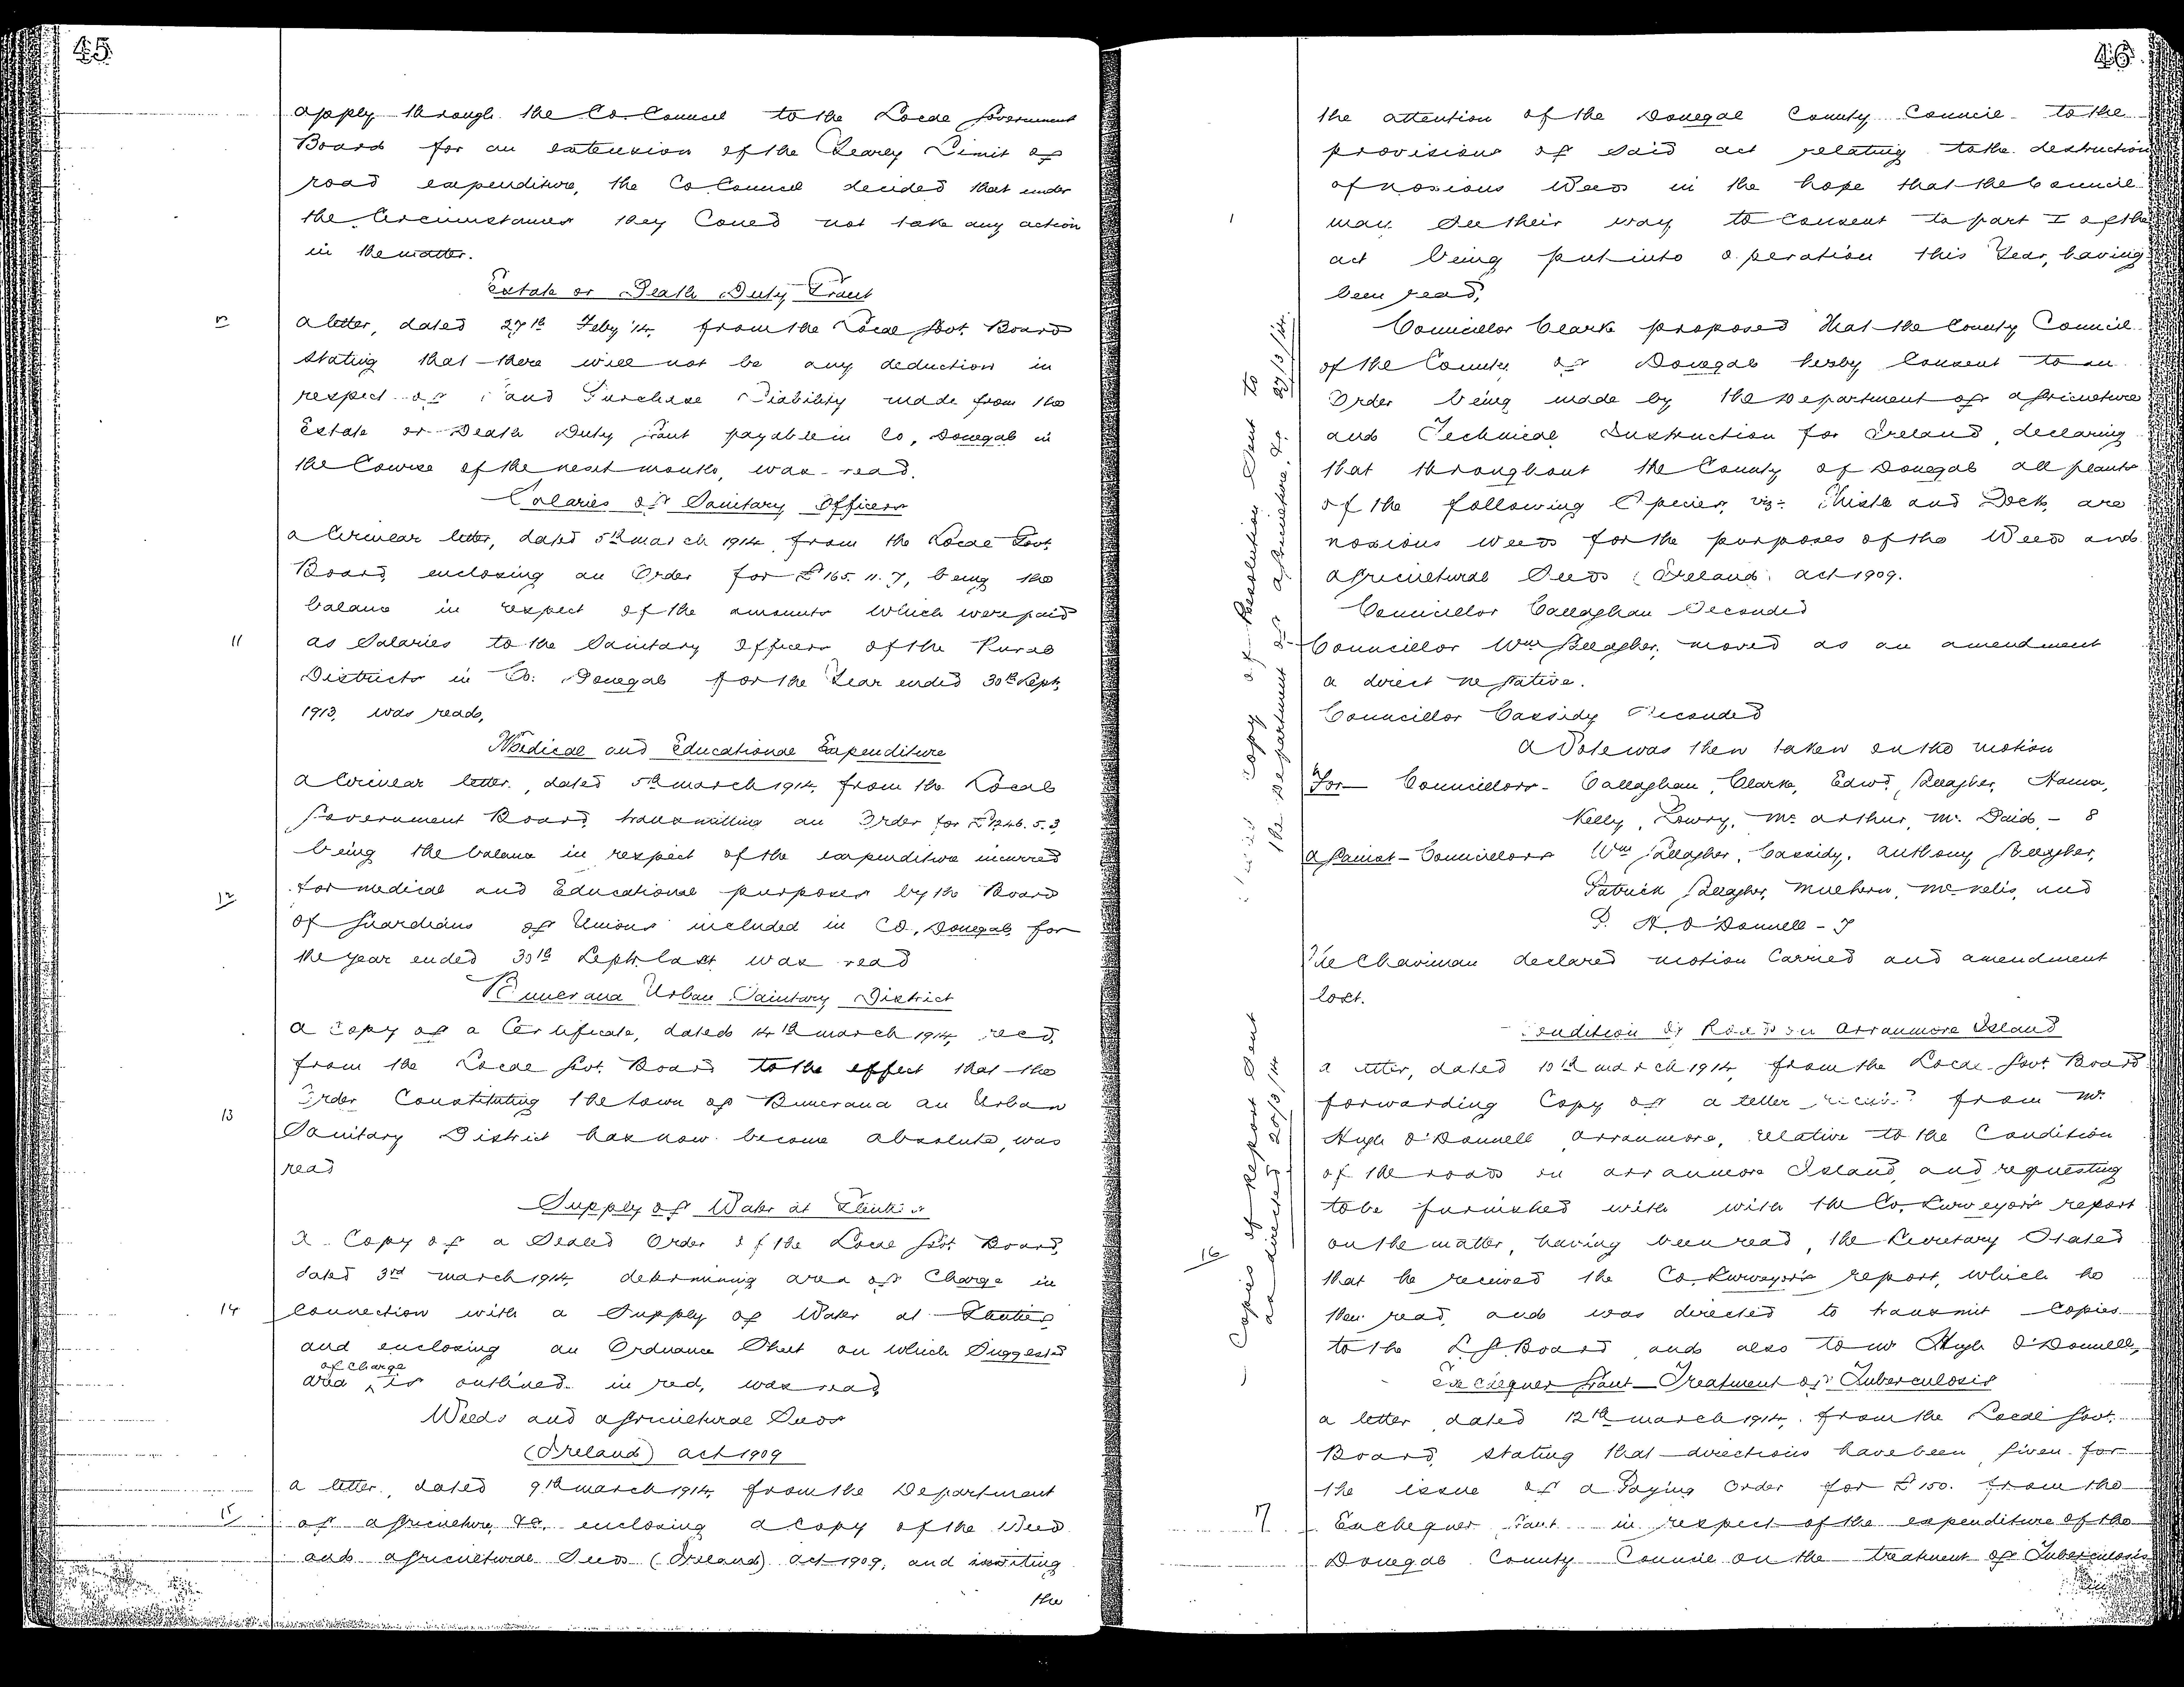 45
apply through the Co. Council to the Local Government
Board for an extension of the Yearly Limit of
road expenditure, the Co Council decided that under
the Circumstances they Could not take any action
in the matter.
Estate or Death Duty Grant
a letter, dated 27th Feby '14, from the Local Govt. Board
stating that there will not be any deduction in
respect of Land Purchase Liability made from the
Estate or Death Duty Grant payable in Co, Donegal in
the Course of the next month, was read.
Salaries of Sanitary Officers
a Circular letter, dated 5th march 1914, from the Local Govt.
Board, enclosing an Order for £165. 11. 7, being the
balance in respect of the amounts which were paid
11 as Salaries to the Sanitary Officers of the Rural
Districts in Co. Donegal for the Year ended 30th Sept,
1913, was read,
Medical and Educational Expenditure
a Circular letter, dated 5th march 1914, from the Local
Government Board, transmitting an Order for £1246. 5. 3,
being the balance in respect of the expenditure incurred
12 for medical and Educational purposes by the Board
of Guardians of Unions included in Co, Donegal, for
the year ended 30th Sept. last was read
Buncrana Urban Sanitary District
a Copy of a Certificate, dated 14th march 1914, recd,
from the Local Govt. Board to the effect that the
13 Order Constituting the town of Buncrana an Urban
Sanitary District has now become absolute, was
read
Supply of Water at
a Copy of a Sealed Order of the Local Govt. Board,
dated 3rd march 1914, determining area of Charge in
14 Connection with a Supply of Water at
and enclosing an Ordnance Sheet on which Suggested
of Charge
area ^ is outlined in red, was read,
Weeds and agricultural Seeds
(Ireland) act 1909
a letter, dated 9th march 1914, from the Department
15 of agriculture, &c, enclosing a copy of the Weeds
and agricultural Seeds (Ireland) act 1909, and inviting
the
46
the attention of the Donegal County Council to the
provisions of said act relating to the destruction
of noxious Weeds in the hope that the Council
may See their way to Consent to part I of the
act being put into operation this Year, having
been read,
Councillor Clarke proposed That the County Council
of the County of Donegal hereby Consent to an
Order being made by the Department of agriculture
and Technical Instruction for Ireland, declaring
that throughout the County of Donegal all plants
of the following Species, viz:- Thistle and Dock, are
noxious weeds for the purposes of the Weeds and
agricultural Seeds (Ireland) act 1909.
Councillor Callaghan Seconded
Councillor Wm Gallagher, moved as an amendment
a direct negative.
Councillor Cassidy Seconded
a Vote was then taken on the motion
For - Councillors - Callaghan, Clarke, Edwd, Gallagher, Hanna,
Kelly, Lowry, Mc arthur, Mc Daid, - 8
against - Councillors Wm Gallagher, Cassidy, Anthony Gallagher,
Patrick Gallagher, Mulhern, Mc nelis, and
P. H. O'Donnell - 7
The Chairman declared motion Carried and amendment
lost.
copy of Resolution Sent to
the Department of agriculture, &c. 27/3/14.
Condition of Roads on Arranmore Island
a letter, dated 10th march 1914, from the Local Govt Board
forwarding Copy of a letter received from Mr.
Hugh O'Donnell, Arranmore, relative to the Condition
of the roads on Arranmore Island, and requesting
to be furnished with with the Co. Surveyor's report
on the matter, having been read, the Secretary Stated
16 that he received the Co. Surveyor's report, which he
then read, and was directed to transmit Copies
to the L. G. Board, and also to mr Hugh O'Donnell,
Copies of Report Sent
as directed 20/3/14
Exchequer Grant - Treatment of Tuberculosis
a letter, dated 12th march 1914, from the Local Govt.
Board, stating that directions have been given for
the issue of a Paying Order for £150. from the
17 Exchequer Grant in respect of the expenditure of the
Donegal County Council on the treatment of Tuberculosis